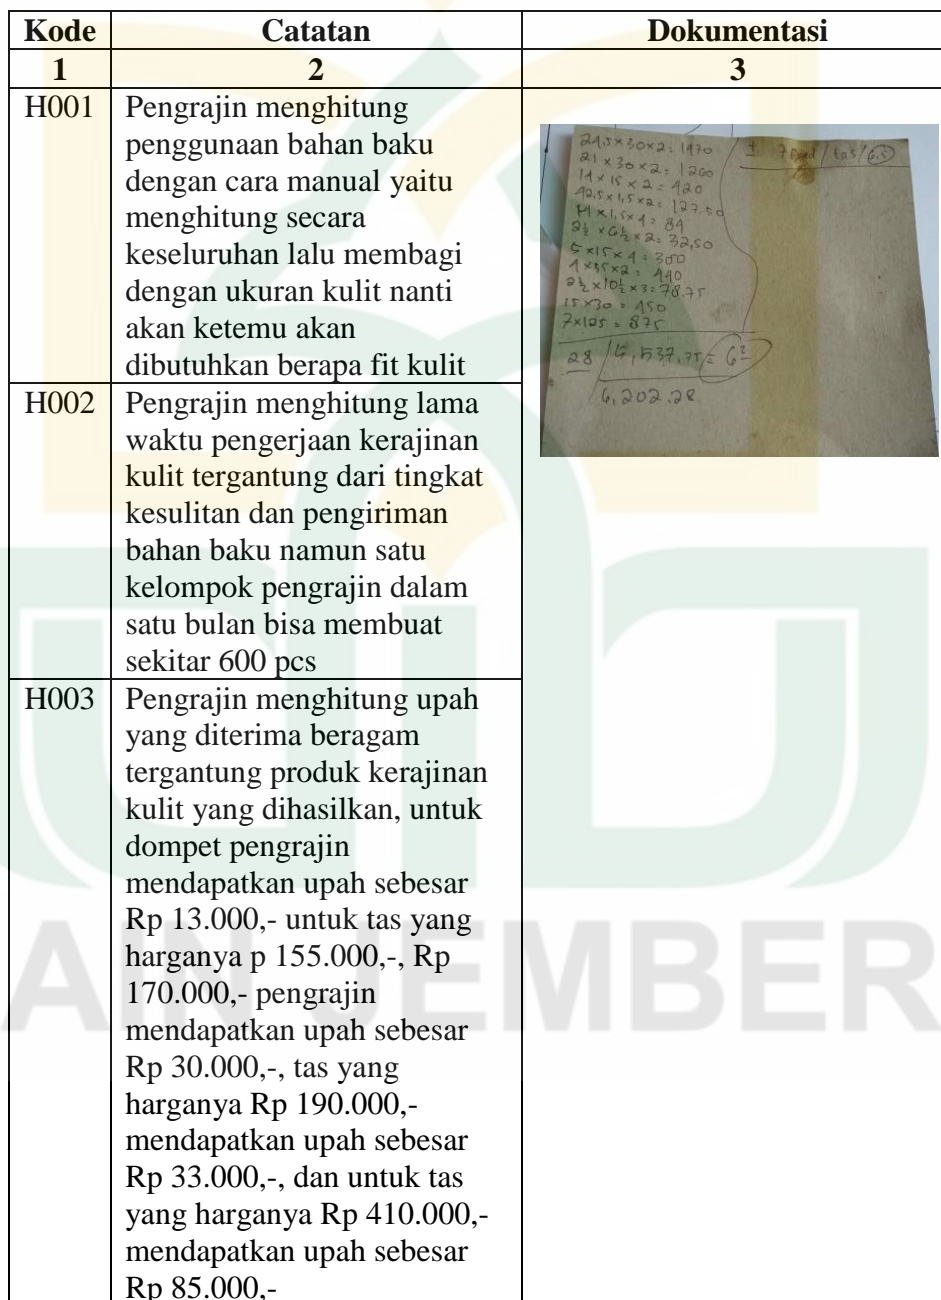 Kode Catatan Dokumentasi
1 2 3
H001 Pengrajin menghitung
penggunaan bahan baku
dengan cara manual yaitu
menghitung secara
keseluruhan lalu membagi
dengan ukuran kulit nanti
akan ketemu akan
dibutuhkan berapa fit kulit
24,5x30x2=1470
21x30x2=1260
14x15x2=420
42,5x1,5x2=127.50
14x1,5x4=84
2½x6½x2=32,50
5x15x4=300
4x55x2=440
2½x10½x3=78.75
15x30=450
7x125=875
28
6,202.28
± 7 / tas / 6.5
H002 Pengrajin menghitung lama
waktu pengerjaan kerajinan
kulit tergantung dari tingkat
kesulitan dan pengiriman
bahan baku namun satu
kelompok pengrajin dalam
satu bulan bisa membuat
sekitar 600 pcs
H003 Pengrajin menghitung upah
yang diterima beragam
tergantung produk kerajinan
kulit yang dihasilkan, untuk
dompet pengrajin
mendapatkan upah sebesar
Rp 13.000,- untuk tas yang
harganya p 155.000,-, Rp
170.000,- pengrajin
mendapatkan upah sebesar
Rp 30.000,-, tas yang
harganya Rp 190.000,-
mendapatkan upah sebesar
Rp 33.000,-, dan untuk tas
yang harganya Rp 410.000,-
mendapatkan upah sebesar
Rp 85.000,-
AIN JEMBER